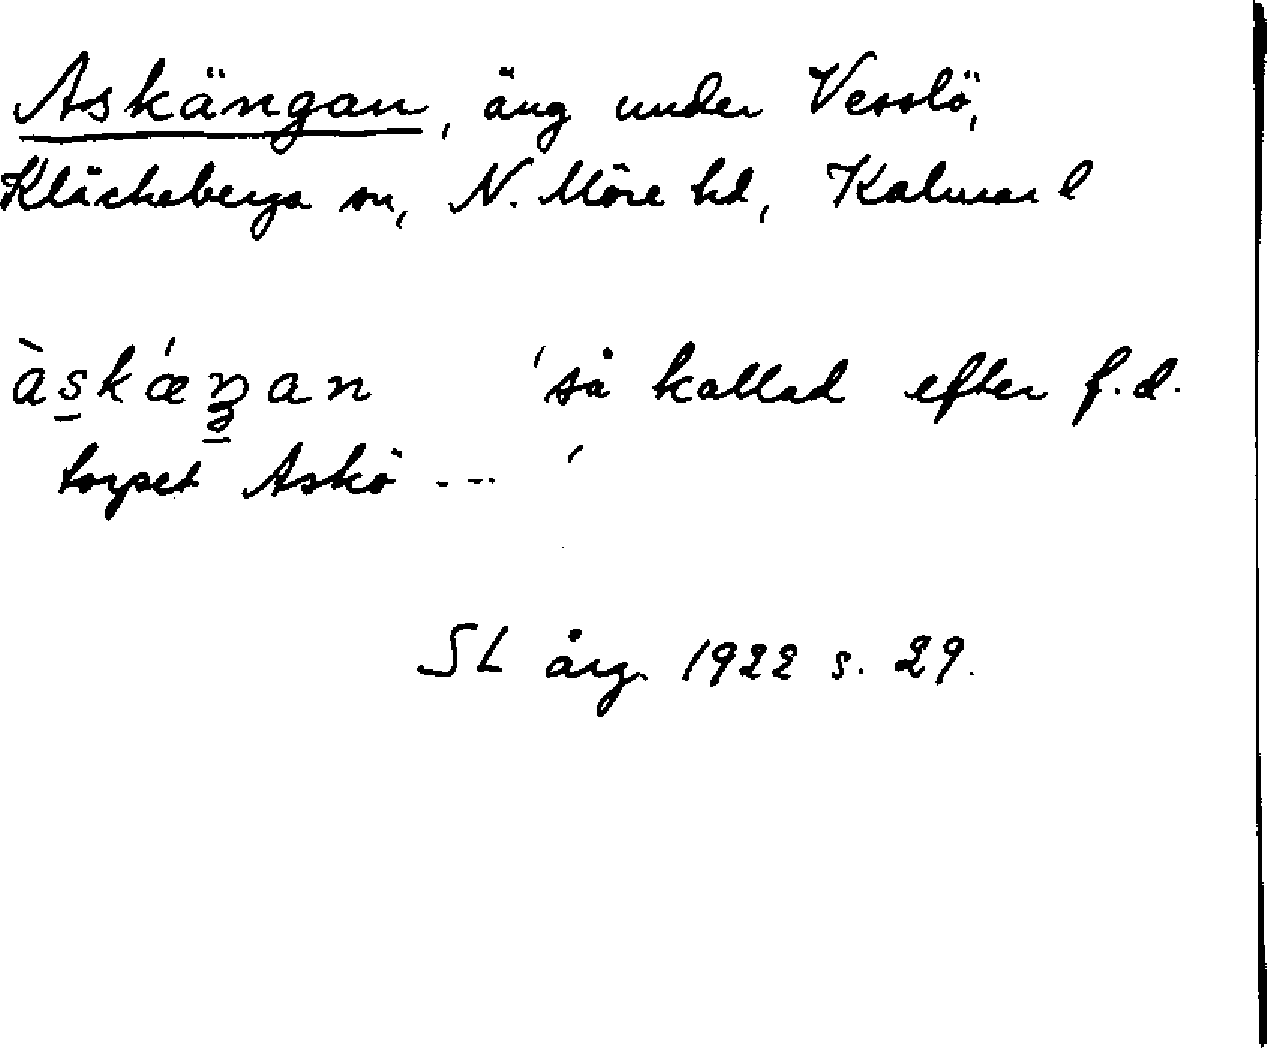 Askängan, äng under Vesslö,
Kläckeberga sn, N. Möre hd, Kalmar l
àskǽŋan 'så kallad efter f.d.
torpet Askö --- '
SL årg. 1922 s. 29.